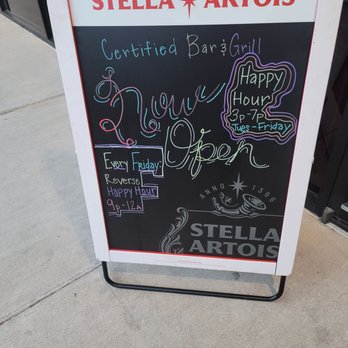 STELLA ★ ARTOIS
Certified Bar & Grill
Happy
Hour
3p-7p
Tues-Friday
Now
Open
Every Friday:
Reverse
Happy Hour
9p-12a
ANNO 1366
STELLA
ARTOIS